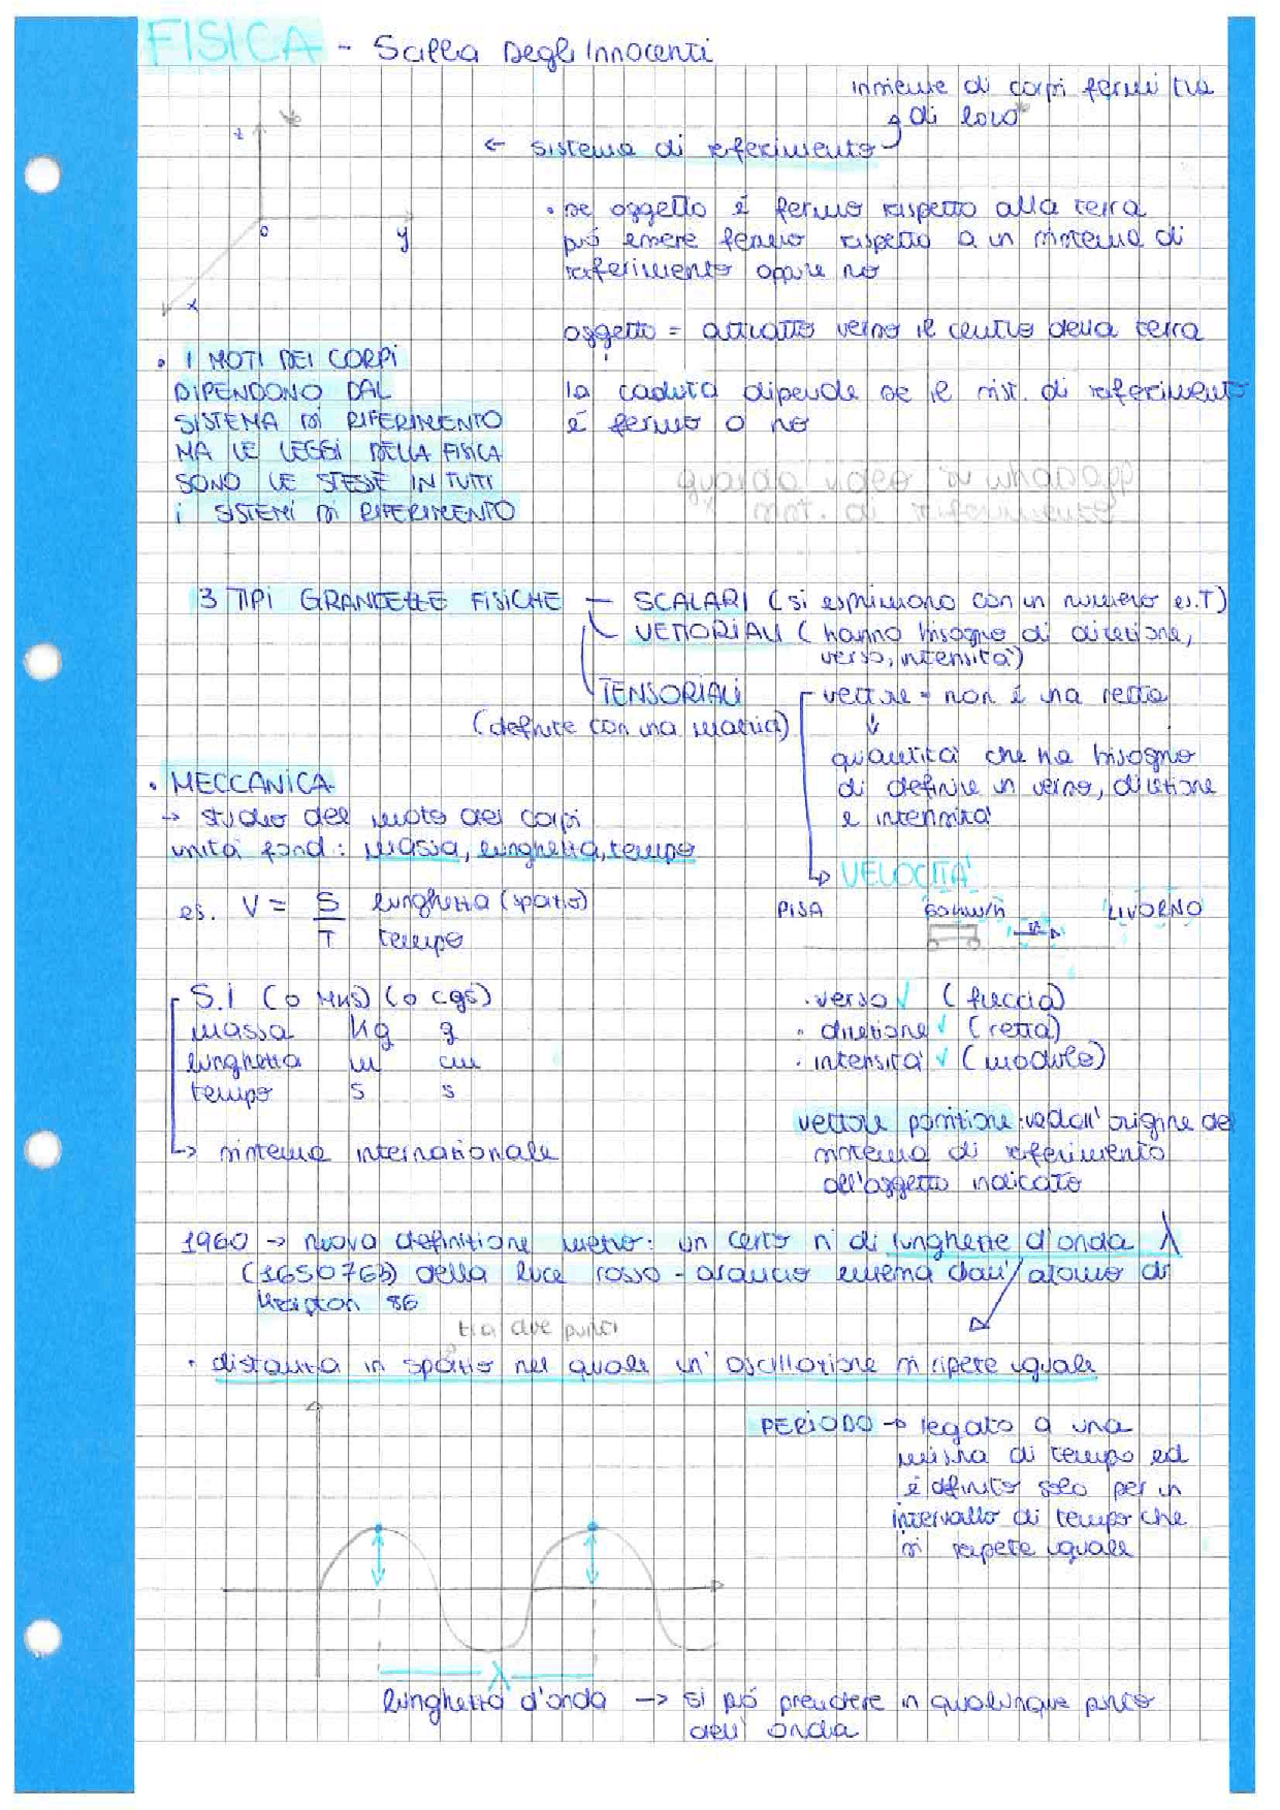 FISICA - Scilla Degli Innocenti
insieme di corpi fermi tra
di loro
← sistema di riferimento
z
o
y
x
• se oggetto è fermo rispetto alla terra
può essere fermo rispetto a un sistema di
riferimento oppure no
oggetto = attratto verso il centro della terra
la caduta dipende se il sist. di riferimento
è fermo o no
• I MOTI DEI CORPI
DIPENDONO DAL
SISTEMA DI RIFERIMENTO
MA LE LEGGI DELLA FISICA
SONO LE STESSE IN TUTTI
i SISTEMI DI RIFERIMENTO
guarda video su whasapp
sist. di riferimento
3 TIPI GRANDEZZE FISICHE — SCALARI (si esprimono con un numero es.T)
VETTORIALI (hanno bisogno di direzione,
verso, intensità)
TENSORIALI
(definite con una matrice)
vettore = non è una retta
↓
quantità che ha bisogno
di definire un verso, direzione
e intensità
• MECCANICA
→ studio del moto dei corpi
unità fond: massa, lunghezza, tempo
es. V = S lunghezza (spazio)
T tempo
↳ VELOCITÀ
PISA 60 km/h LIVORNO
• verso √ (freccia)
• direzione √ (retta)
• intensità √ (modulo)
S.I (o MKS) (o cgs)
massa kg g
lunghezza m cm
tempo s s
↳ sistema internazionale
vettore posizione: va dall'origine del
sistema di riferimento
all'oggetto indicato
1960 → nuova definizione metro: un certo n° di lunghezze d'onda λ
(1650763) della luce rosso-arancio emessa dall'atomo di
Kripton 86
tra due punti
• distanza in spazio nel quale un'oscillazione si ripete uguale
PERIODO → legato a una
misura di tempo ed
è definito solo per un
intervallo di tempo che
si ripete uguale
λ
lunghezza d'onda → si può prendere in qualunque punto
dell'onda